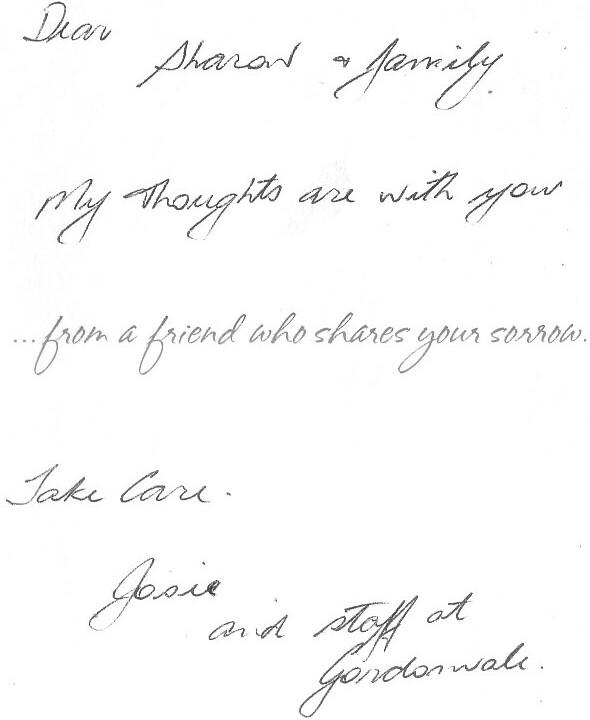 Dear
Sharon & family.
My thoughts are with you
...from a friend who shares your sorrow.
Take Care.
Josie
and staff at
Gordonvale.